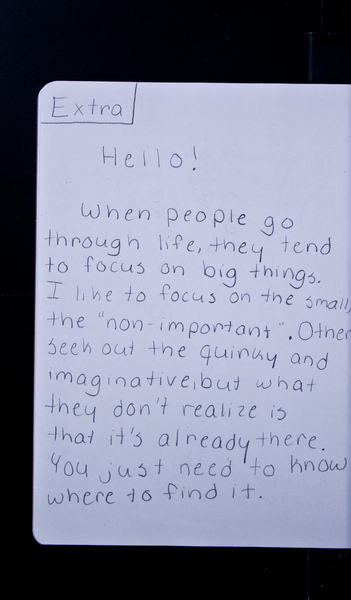 Extra
Hello!
When people go
through life, they tend
to focus on big things.
I like to focus on the small,
the "non-important". Other
seek out the quirky and
imaginative, but what
they don't realize is
that it's already there.
You just need to know
where to find it.